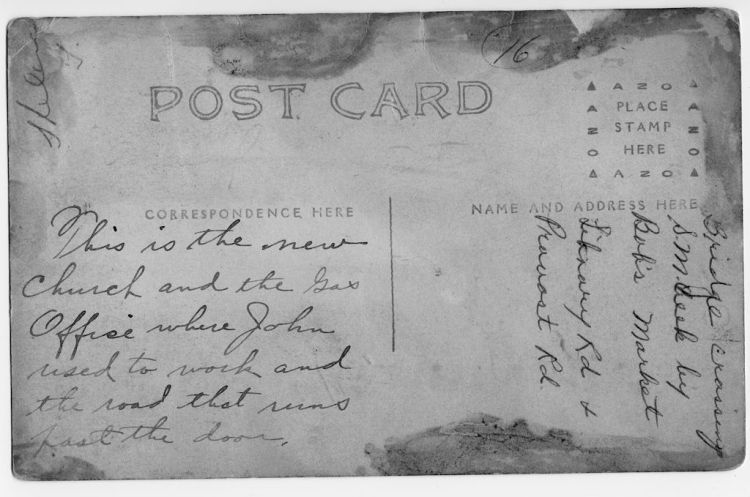 '16
POST CARD
AZO
PLACE
STAMP
HERE
AZO
AZO
AZO
CORRESPONDENCE HERE
NAME AND ADDRESS HERE
This is the new
church and the Gas
Office where John
used to work and
the road that runs
past the door.
Bridge crossing
S.M. Creek by
Bob's Market
Library Rd +
Provost Rd.